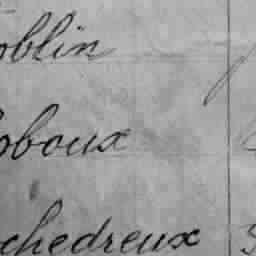 oblin
oboux
chedreux